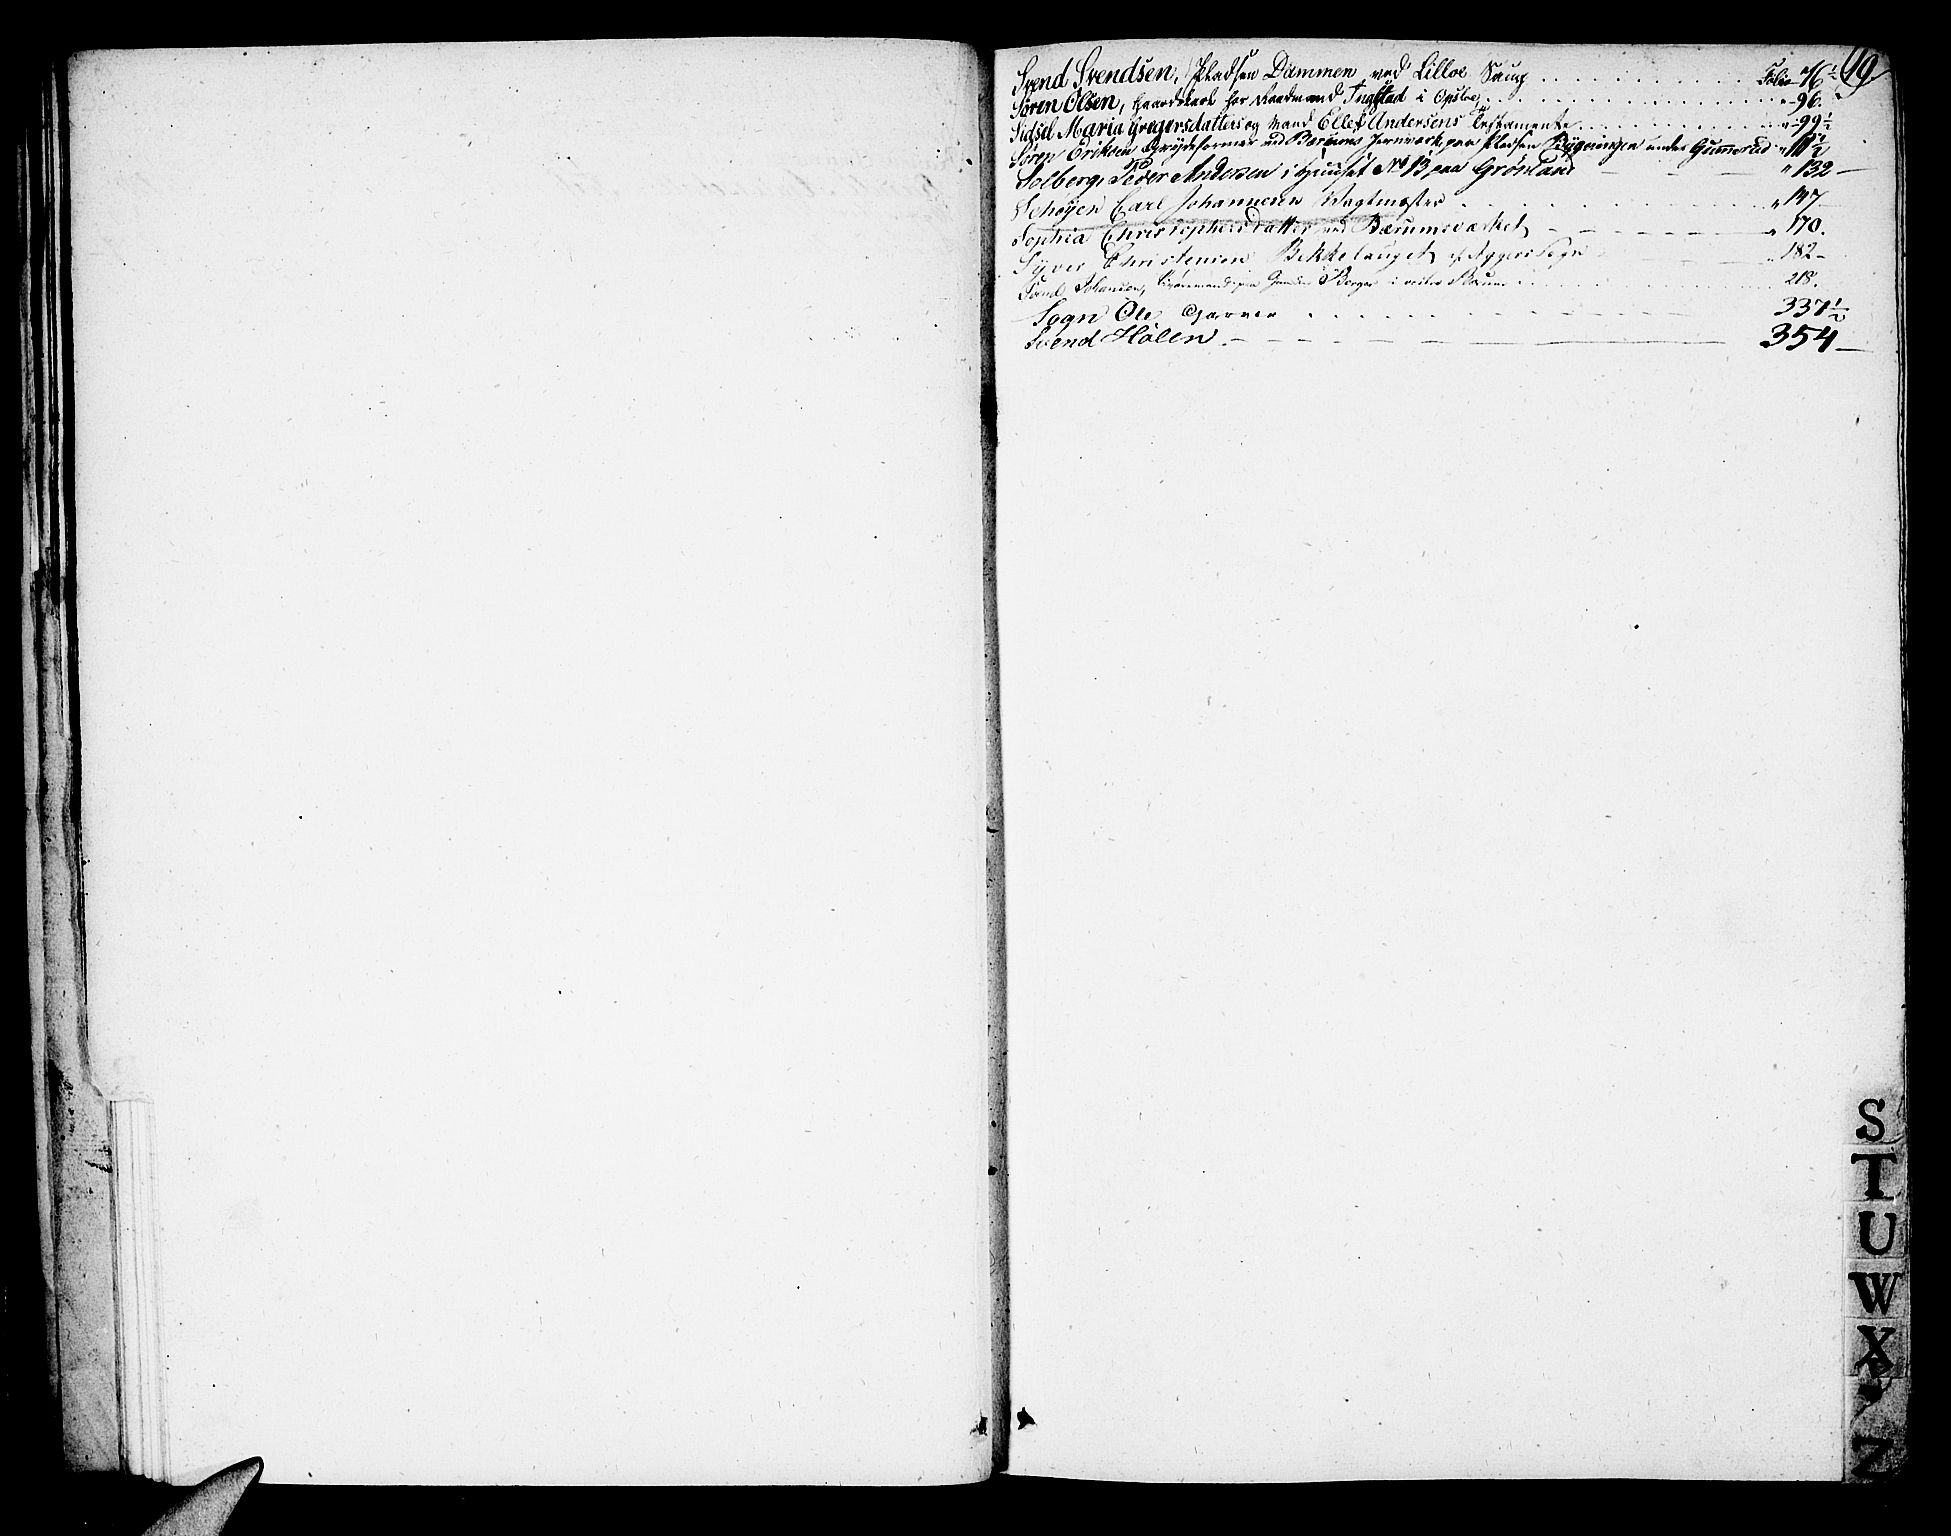 19
Svend Svendsen, Pladsen Dammen ved Lilloe Saug . . . . . . . Folio 76½
Søren Olsen, Gaardskarl hos Raadmand Ingstad i Opsloe . . . . . . . " 96.
Sidsel Maria Gregersdatters og Mand Ellef Andersens Testamente . . . . . . . " 99½
Søren Eriksen Grydeformer ved Bærums Jernverk paa Pladsen Bygningen under Gummerud " 111½
Solberg, Peder Andersen i Huuset No 13 paa Grönland - - - " 132 -
Schøyen Carl Johannesen Vagtmester . . . . . . . " 147
Sophia Christophersdatter ved Bærumsværket - - - " 170.
Syver Christensen Bekkelauget af Aggers Sogn - - - " 182 -
Svend Johansen, Berger i vestre Bærum . . . . . . . 218.
Sogn Ole Garver . . . . . . . 337½
Svend Hølen - - - 354 -
S
T
U
W
X
Z